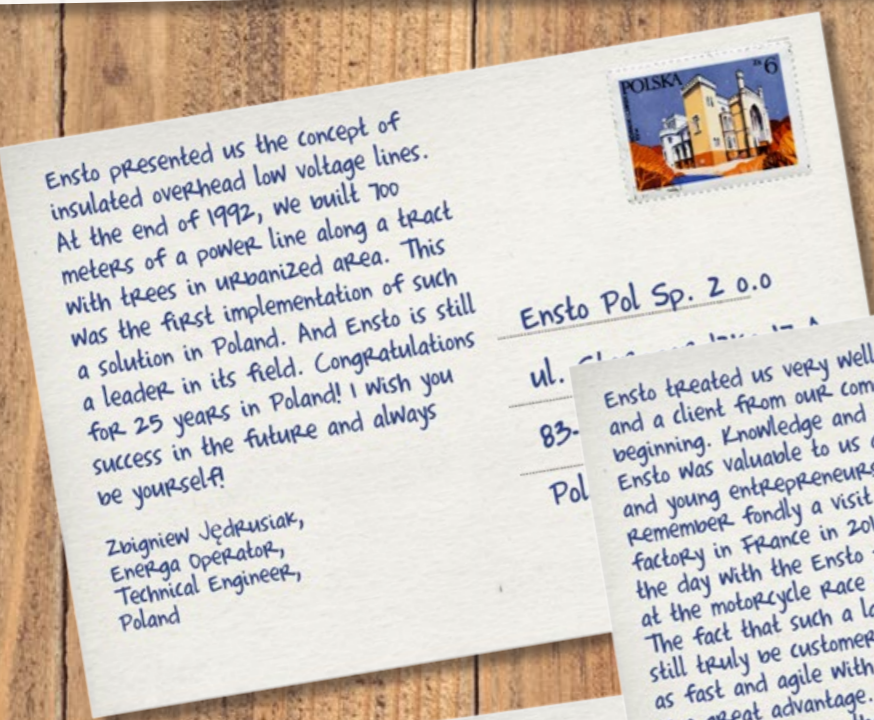 Ensto presented us the concept of
insulated overhead low voltage lines.
At the end of 1992, we built 700
meters of a power line along a tract
with trees in urbanized area. This
was the first implementation of such
a solution in Poland. And Ensto is still
a leader in its field. Congratulations
for 25 years in Poland! I wish you
success in the future and always
be yourself!
Zbigniew Jędrusiak,
Energa Operator,
Technical Engineer,
Poland
POLSKA zł 6
Ensto Pol Sp. z o.o
ul.
83-
Pol
Ensto treated us very well
and a client from our com
beginning. Knowledge and
Ensto was valuable to us
and young entrepreneurs
remember fondly a visit
factory in France in 201
the day with the Ensto
at the motorcycle race
The fact that such a la
still truly be customer
as fast and agile with
great advantage.